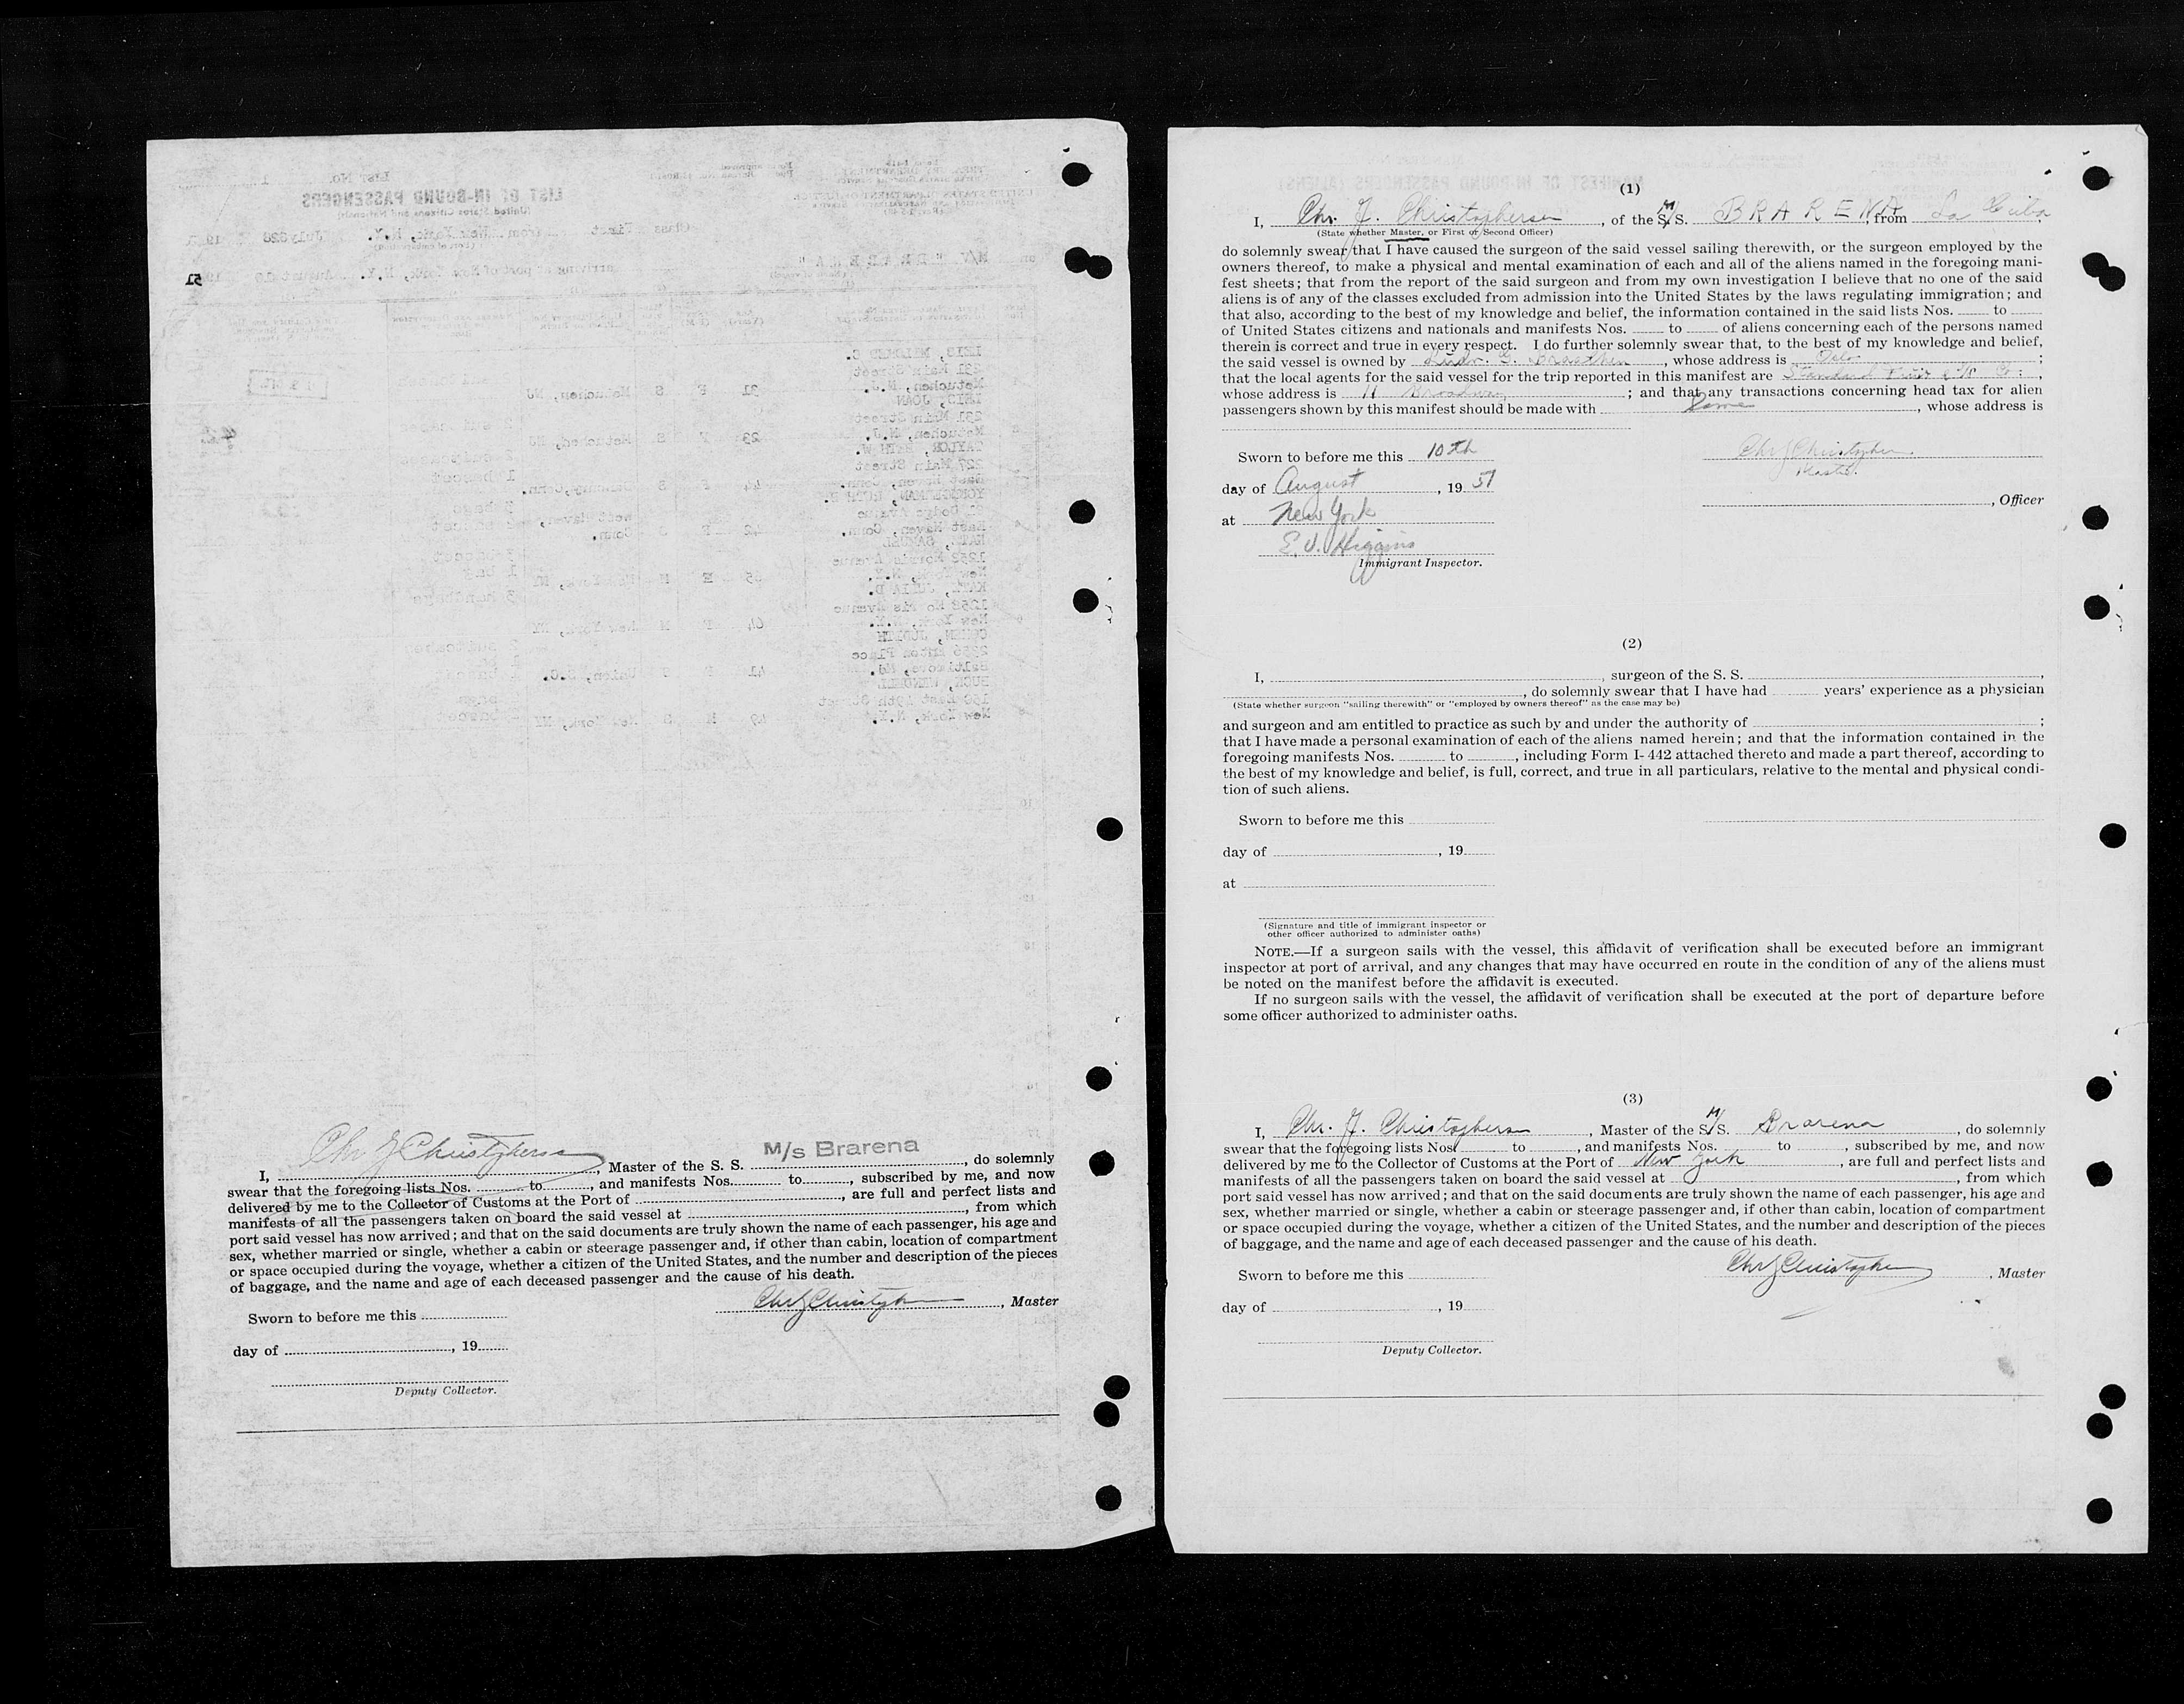 LIST NO. 1
LIST OF IN-BOUND PASSENGERS
(United States Citizens and Nationals)
Class First from New York, N.Y. July 28
arriving at port of New York, N.Y. August 10
51
LEIS, MILDRED C.
231 Main Street
Metuchen, N.J. 31 F S Metuchen, NJ
LEIS, JOAN
231 Main Street
Metuchen, N.J. 23 F S
TAYLOR, RUTH W.
227 Main Street
East Haven, Conn. 44 F S
East Haven, Conn. 42 F S West Haven, Conn.
KARL, SAMUEL
1258 Morris Avenue
New York, N.Y. 65 M New York, NY
KARL, JULIA D.
New York, N.Y. 64 F M New York, NY
COHEN, JUDITH
Baltimore, Md. 41 F Union, S.C.
BUCK, WENDELL
150 East 19th Street
New York, N.Y. 49 M S New York, NY
I, Chr J Christophersen, Master of the S. S. M/s Brarena, do solemnly
swear that the foregoing lists Nos. to, and manifests Nos. to, subscribed by me, and now
delivered by me to the Collector of Customs at the Port of , are full and perfect lists and
manifests of all the passengers taken on board the said vessel at , from which
port said vessel has now arrived; and that on the said documents are truly shown the name of each passenger, his age and
sex, whether married or single, whether a cabin or steerage passenger and, if other than cabin, location of compartment
or space occupied during the voyage, whether a citizen of the United States, and the number and description of the pieces
of baggage, and the name and age of each deceased passenger and the cause of his death.
Sworn to before me this
Chr J Christophersen, Master
day of , 19
Deputy Collector.
(1)
I, Chr. J. Christophersen, of the M/S. BRARENA, from La Ceiba
(State whether Master, or First or Second Officer)
do solemnly swear that I have caused the surgeon of the said vessel sailing therewith, or the surgeon employed by the
owners thereof, to make a physical and mental examination of each and all of the aliens named in the foregoing mani-
fest sheets; that from the report of the said surgeon and from my own investigation I believe that no one of the said
aliens is of any of the classes excluded from admission into the United States by the laws regulating immigration; and
that also, according to the best of my knowledge and belief, the information contained in the said lists Nos. to
of United States citizens and nationals and manifests Nos. to of aliens concerning each of the persons named
therein is correct and true in every respect. I do further solemnly swear that, to the best of my knowledge and belief,
the said vessel is owned by Ludv. G. Braathen, whose address is Oslo;
that the local agents for the said vessel for the trip reported in this manifest are Standard Fruit & SS Co.,
whose address is 11 Broadway; and that any transactions concerning head tax for alien
passengers shown by this manifest should be made with Same, whose address is
Sworn to before me this 10th
Chr J Christophersen
Master.
day of August, 19 51
, Officer
at New York
E. J. Higgins
Immigrant Inspector.
(2)
I, , surgeon of the S. S. ,
, do solemnly swear that I have had years' experience as a physician
(State whether surgeon "sailing therewith" or "employed by owners thereof" as the case may be)
and surgeon and am entitled to practice as such by and under the authority of ;
that I have made a personal examination of each of the aliens named herein; and that the information contained in the
foregoing manifests Nos. to , including Form I-442 attached thereto and made a part thereof, according to
the best of my knowledge and belief, is full, correct, and true in all particulars, relative to the mental and physical condi-
tion of such aliens.
Sworn to before me this
day of , 19
at
(Signature and title of immigrant inspector or
other officer authorized to administer oaths)
NOTE.—If a surgeon sails with the vessel, this affidavit of verification shall be executed before an immigrant
inspector at port of arrival, and any changes that may have occurred en route in the condition of any of the aliens must
be noted on the manifest before the affidavit is executed.
If no surgeon sails with the vessel, the affidavit of verification shall be executed at the port of departure before
some officer authorized to administer oaths.
(3)
I, Chr. J. Christophersen, Master of the M/S. Brarena, do solemnly
swear that the foregoing lists Nos. to , and manifests Nos. to , subscribed by me, and now
delivered by me to the Collector of Customs at the Port of New York, are full and perfect lists and
manifests of all the passengers taken on board the said vessel at , from which
port said vessel has now arrived; and that on the said documents are truly shown the name of each passenger, his age and
sex, whether married or single, whether a cabin or steerage passenger and, if other than cabin, location of compartment
or space occupied during the voyage, whether a citizen of the United States, and the number and description of the pieces
of baggage, and the name and age of each deceased passenger and the cause of his death.
Sworn to before me this
Chr J Christophersen, Master
day of , 19
Deputy Collector.